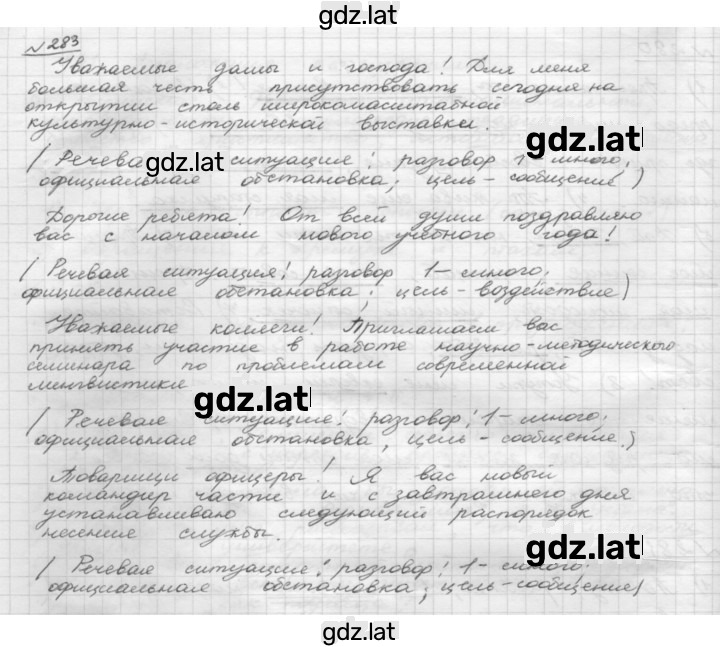 gdz.lat
№283
Уважаемые дамы и господа! Для меня
большая честь присутствовать сегодня на
открытии столь широкомасштабной
культурно-исторической выставки.
gdz.lat
(Речевая ситуация: разговор 1-много,
gdz.lat
официальная обстановка; цель-сообщение)
Дорогие ребята! От всей души поздравляю
вас с началом нового учебного года!
(Речевая ситуация: разговор 1-много;
официальная обстановка; цель-воздействие)
Уважаемые коллеги! Приглашаем вас
принять участие в работе научно-методического
семинара по проблемам современной
лингвистики
gdz.lat
(Речевая ситуация: разговор: 1-много;
официальная обстановка, цель-сообщение.)
Товарищи офицеры! Я ваш новый
командир части и с завтрашнего дня
устанавливаю следующий распорядок
несения службы.
gdz.lat
(Речевая ситуация: разговор: 1-много;
официальная обстановка; цель-сообщение)
gdz.lat